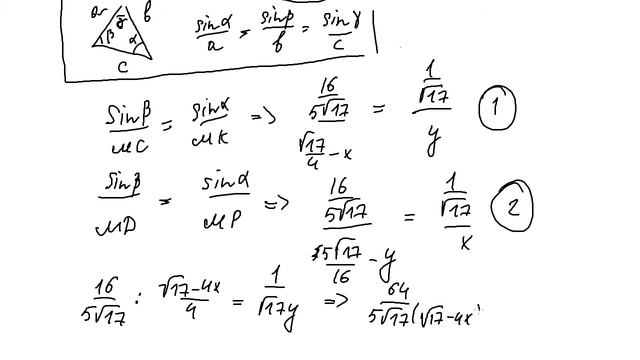 a γ b
β α
c
sinα/a = sinβ/b = sinγ/c
sinβ/MC = sinα/MK => (16/(5√17))/(√17/4 - x) = (1/√17)/y ①
sinβ/MD = sinα/MP => (16/(5√17))/(5√17/16 - y) = (1/√17)/x ②
16/(5√17) : (√17-4x)/4 = 1/(√17y) => 64/(5√17(√17-4x